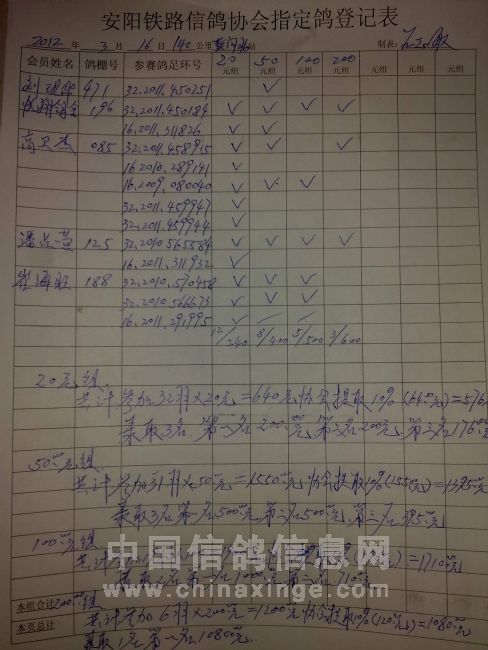 安阳铁路信鸽协会指定鸽登记表
2012 年 3 月 16 日 140 公里 站 制表:
会员姓名 鸽棚号 参赛鸽足环号 20元组 50元组 100元组 200元组 元组 元组 元组 元组
471 32.2011.450251 ✓
196 32.2011.450184 ✓ ✓ ✓ ✓
16.2011.311826 ✓ ✓
高卫杰 085 32.2011.458915 ✓ ✓ ✓
16.2010.289141 ✓
16.2009.080040 ✓ ✓ ✓
32.2011.459947 ✓
32.2011.459944 ✓
125 32.2010.565584 ✓ ✓ ✓ ✓
16.2011.311932 ✓
崔海 188 32.2010.570458 ✓ ✓ ✓
32.2010.566673 ✓ ✓ ✓
16.2011.291995 ✓
12/240 8/400 5/500 3/600
20元组.
共计参加32羽×20元=640元协会提取10%(64.00元)=576
录取3名.第一名200元第二名200元.第三名176元
50元组
共计参加31羽×50元=1550元协会提取10%(155元)=1395元
录取3名第一名500元,第二名500元,第三名395元
100元组
共计 =1710元
录取2名第一名 710元
本组合计 200元组
本页总计 共计参加6羽×200元=1200元协会提取10%(120元)=1080元
录取1名第一名1080元.
中国信鸽信息网
www.chinaxinge.com